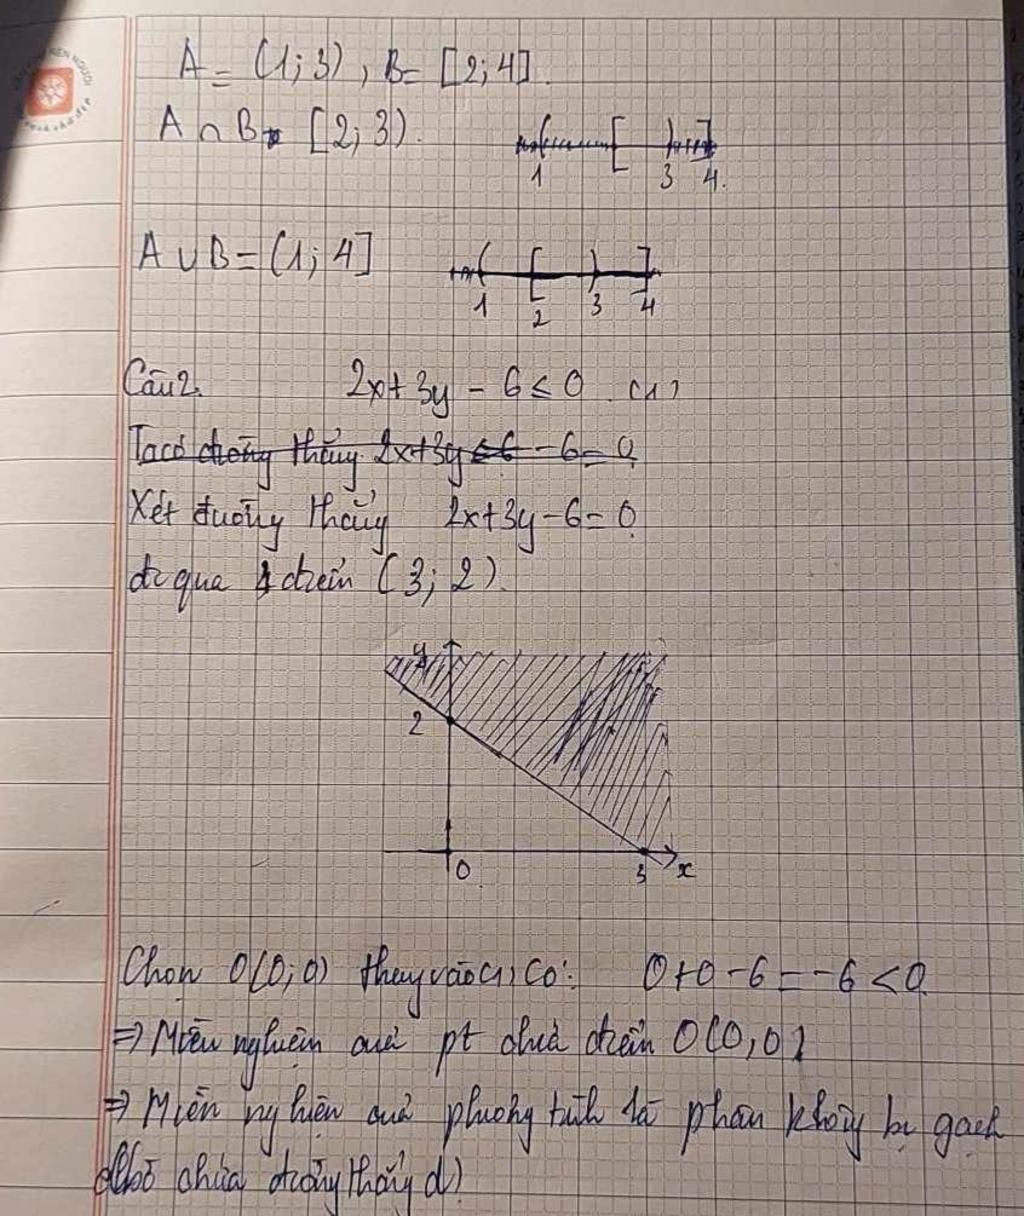 A = (1; 3), B = [2; 4].
A ∩ B = [2; 3).
1 3 4.
A ∪ B = (1; 4]
1 2 3 4
Câu 2. 2x + 3y - 6 ≤ 0 (1)
Ta có đường thẳng 2x+3y - 6 = 0
Xét đường thẳng 2x+3y-6=0
đi qua điểm (3; 2).
y
2
O 3 x
Chọn O(0;0) thay vào (1) có: 0+0-6=-6<0
⇒ Miền nghiệm của pt chứa điểm O(0,0)
⇒ Miền nghiệm của phương trình là phần không bị gạch
chứa đường thẳng d)